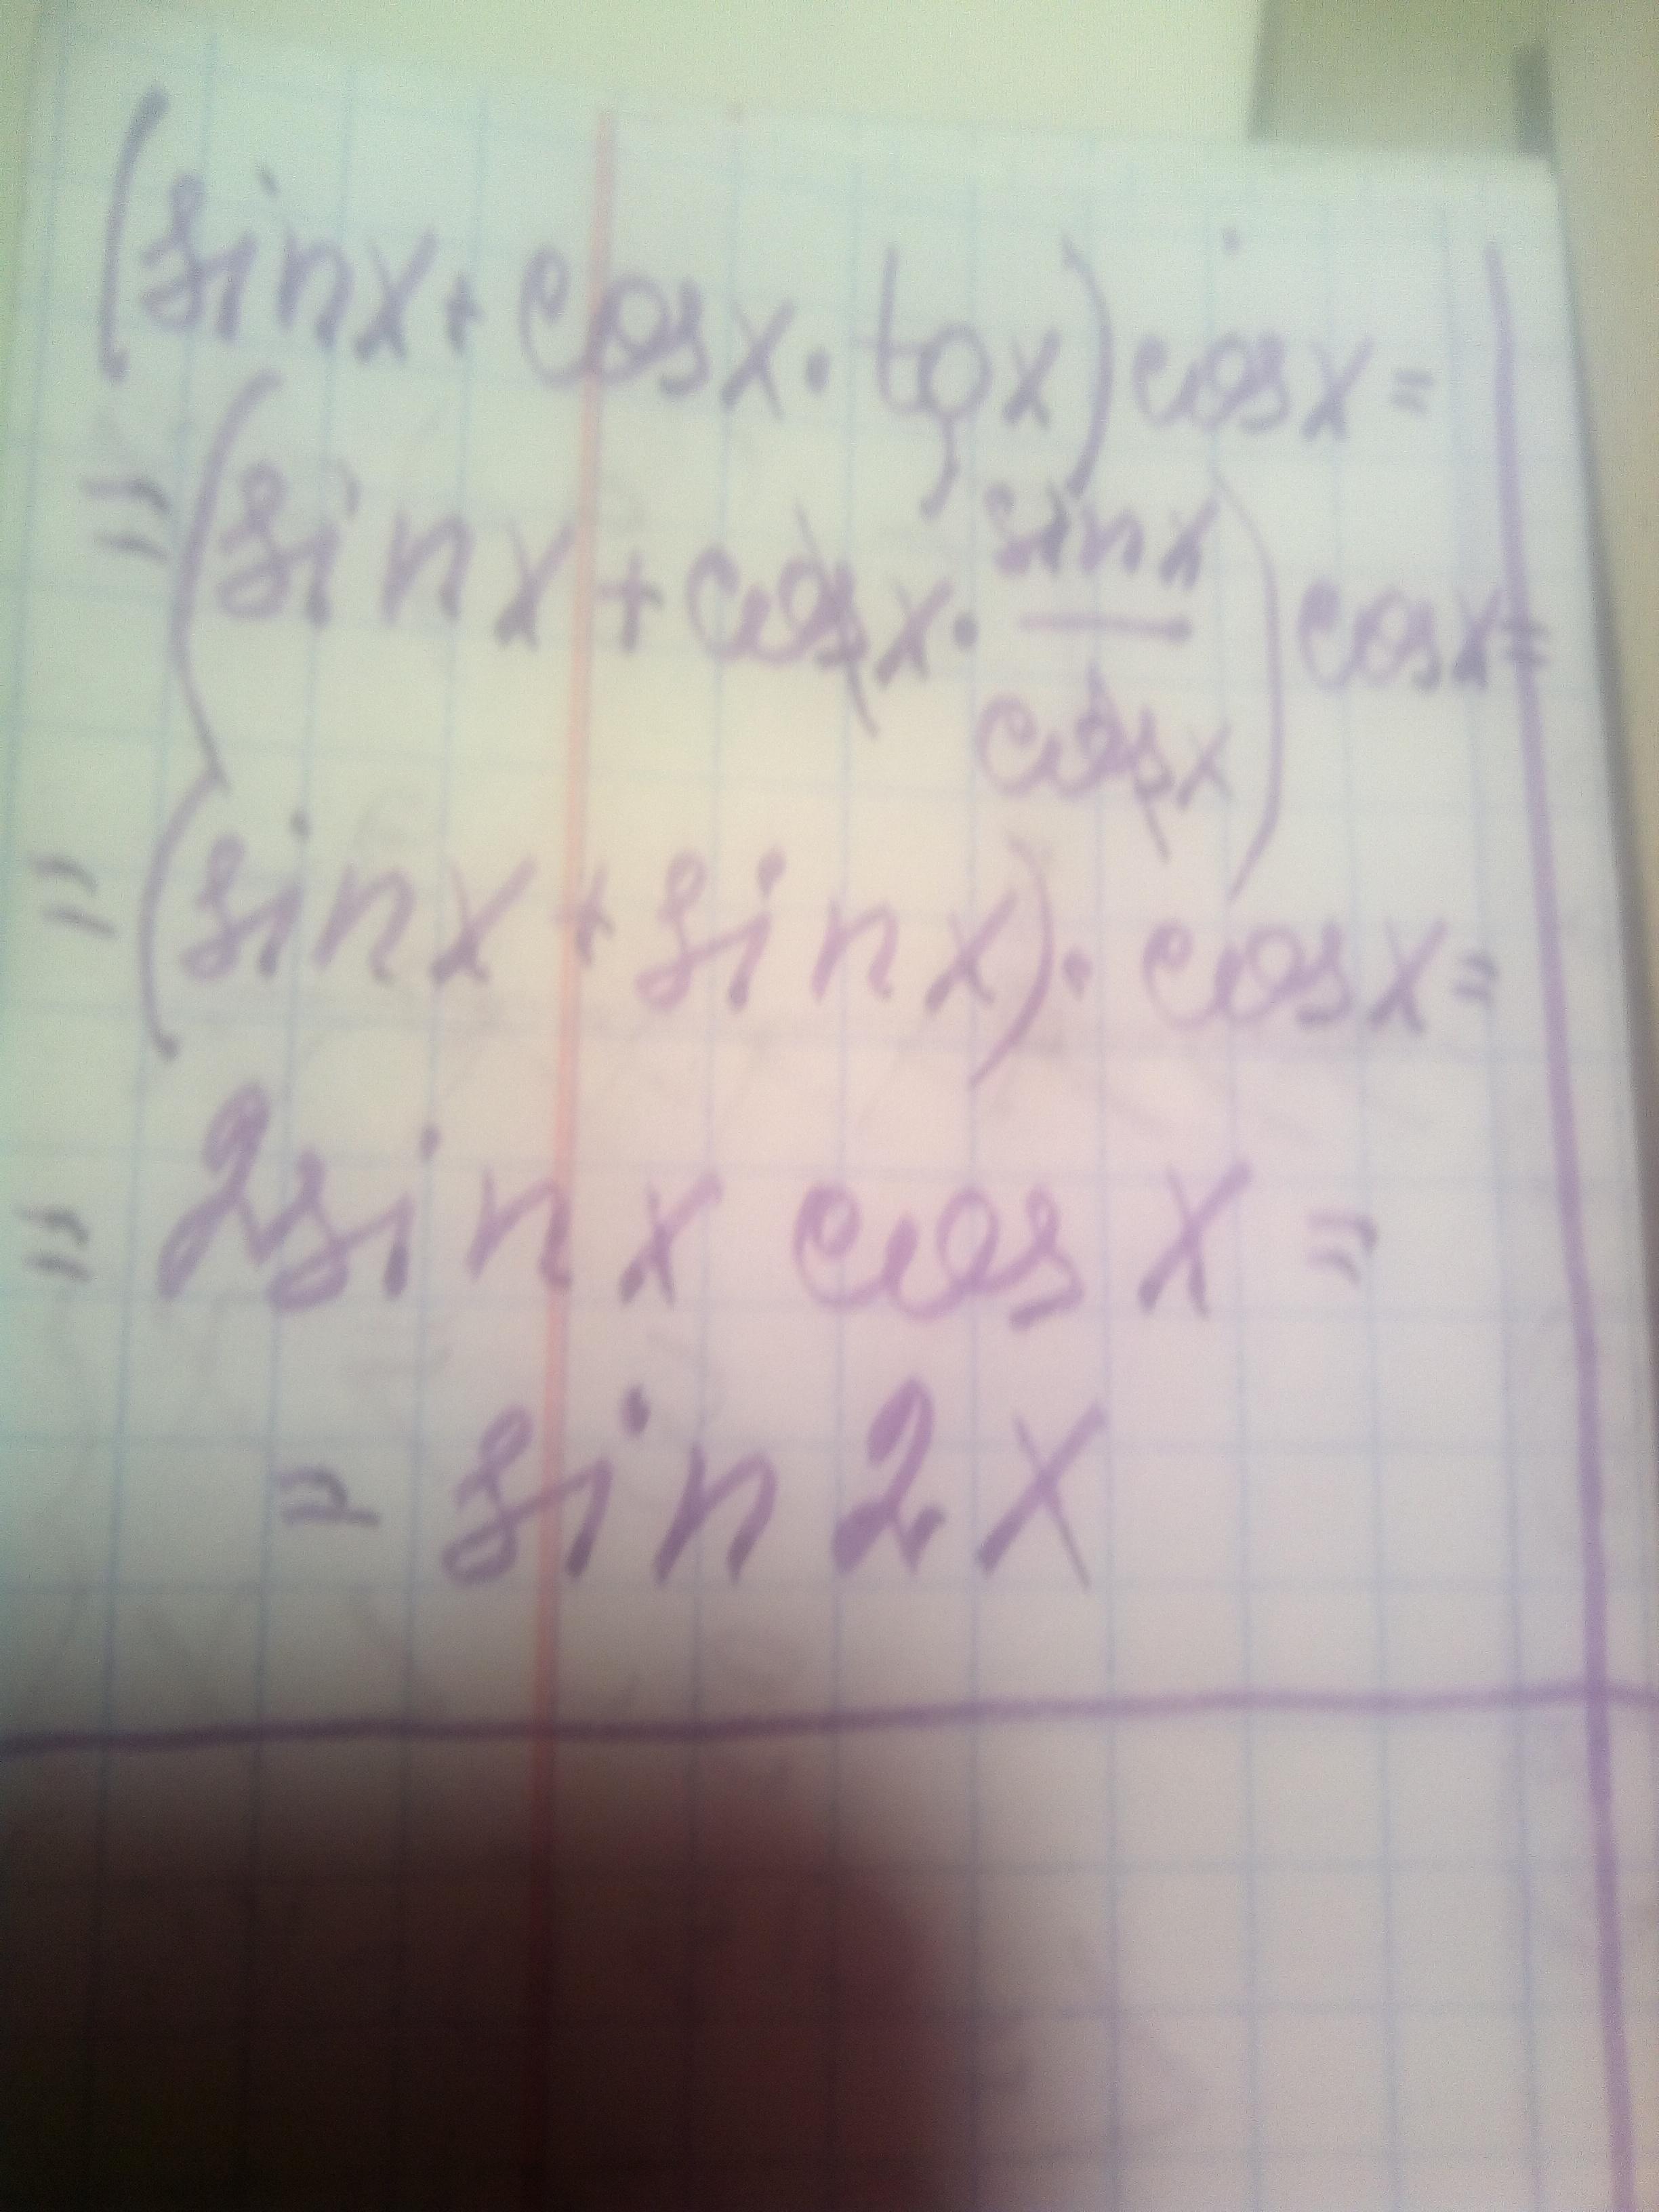 (sinx + cosx · tgx) cosx =
= (sinx + cosx · sinx/cosx) cosx =
= (sinx + sinx) · cosx =
= 2sinx cosx =
= sin2x